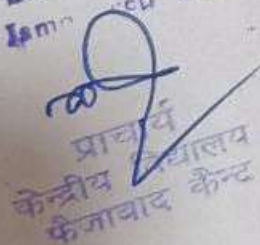 प्राचार्य
केन्द्रीय विद्यालय
फैजाबाद कैन्ट